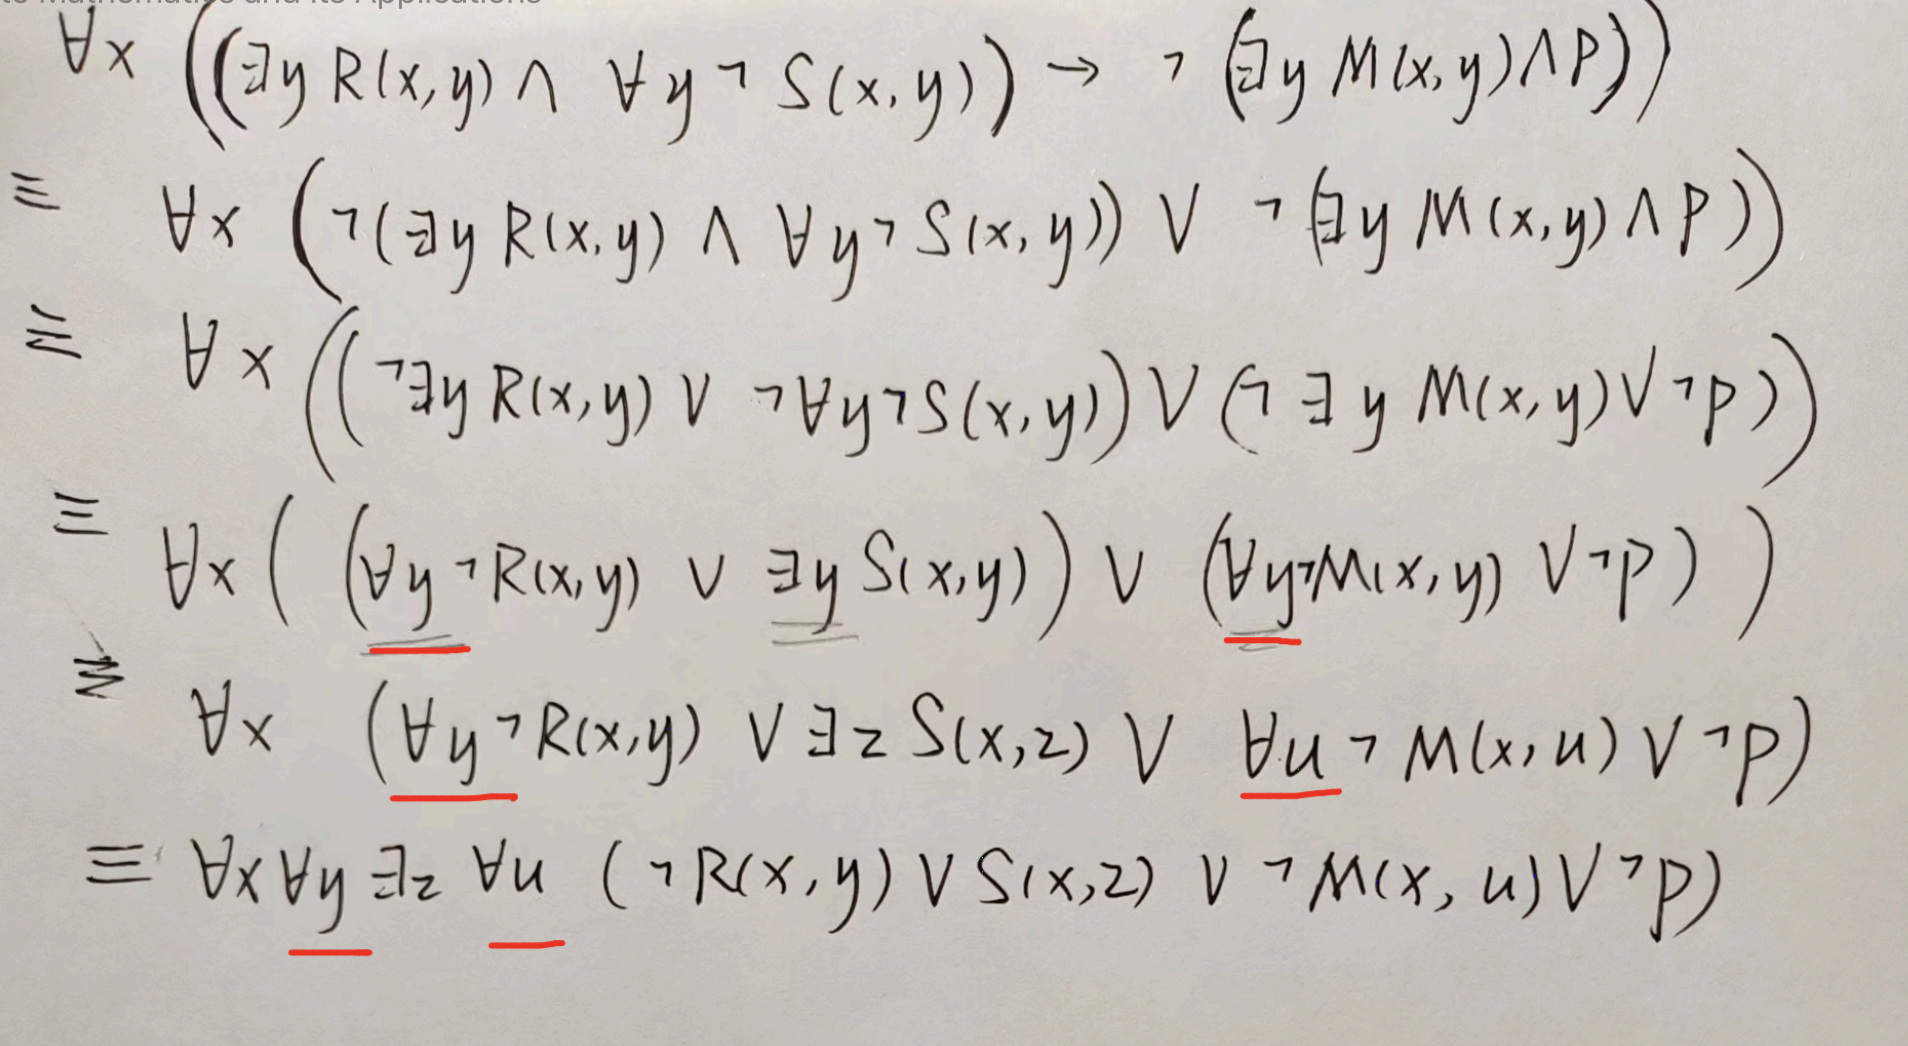 to Mathematics and its Applications
∀x ((∃y R(x,y) ∧ ∀y ¬ S(x,y)) → ¬ (∃y M(x,y) ∧ P))
≡ ∀x (¬(∃y R(x,y) ∧ ∀y ¬ S(x,y)) ∨ ¬ (∃y M(x,y) ∧ P))
≡ ∀x ((¬∃y R(x,y) ∨ ¬∀y ¬S(x,y)) ∨ (¬ ∃y M(x,y) ∨ ¬P))
≡ ∀x ( (∀y ¬R(x,y) ∨ ∃y S(x,y)) ∨ (∀y ¬M(x,y) ∨ ¬P) )
≡ ∀x (∀y ¬R(x,y) ∨ ∃z S(x,z) ∨ ∀u ¬ M(x,u) ∨ ¬P)
≡ ∀x ∀y ∃z ∀u (¬R(x,y) ∨ S(x,z) ∨ ¬M(x,u) ∨ ¬P)